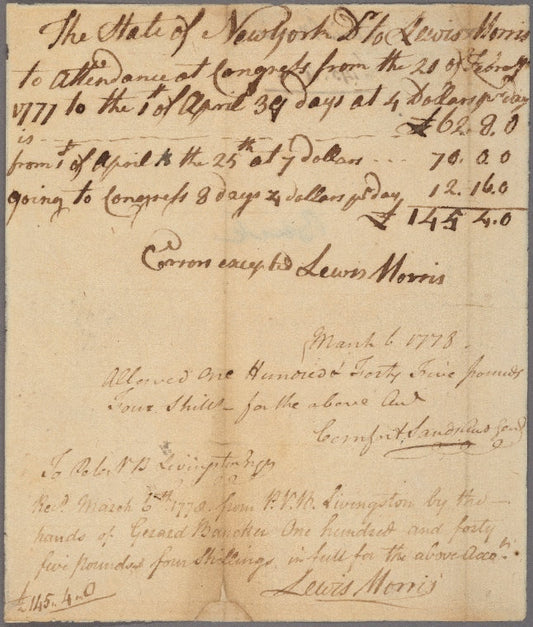 The State of New York Dr to Lewis Morris
to Attendance at Congress from the 20 of Febrary
1777 to the 1st of April 39 days at 4 Dollars pr day
is £62.8.0
from 1st of April to the 25th at 7 dollars --- 70.0.0
going to Congress 8 days 4 dollars pr day 12.16.0
£145 4.0
Errors excepted Lewis Morris
March 6 1778.
Allowed One Hundred & Forty Five pounds
Four Shills - for the above Act
Comfort Sands Aud Genl
To Peter V B Livingston Esqr
Recd March 6th 1778 from P.V.B. Livingston by the
hands of Gerard Bancker One hundred and forty
five pounds four Shillings in full for the above Acco
Lewis Morris
£145.4.0